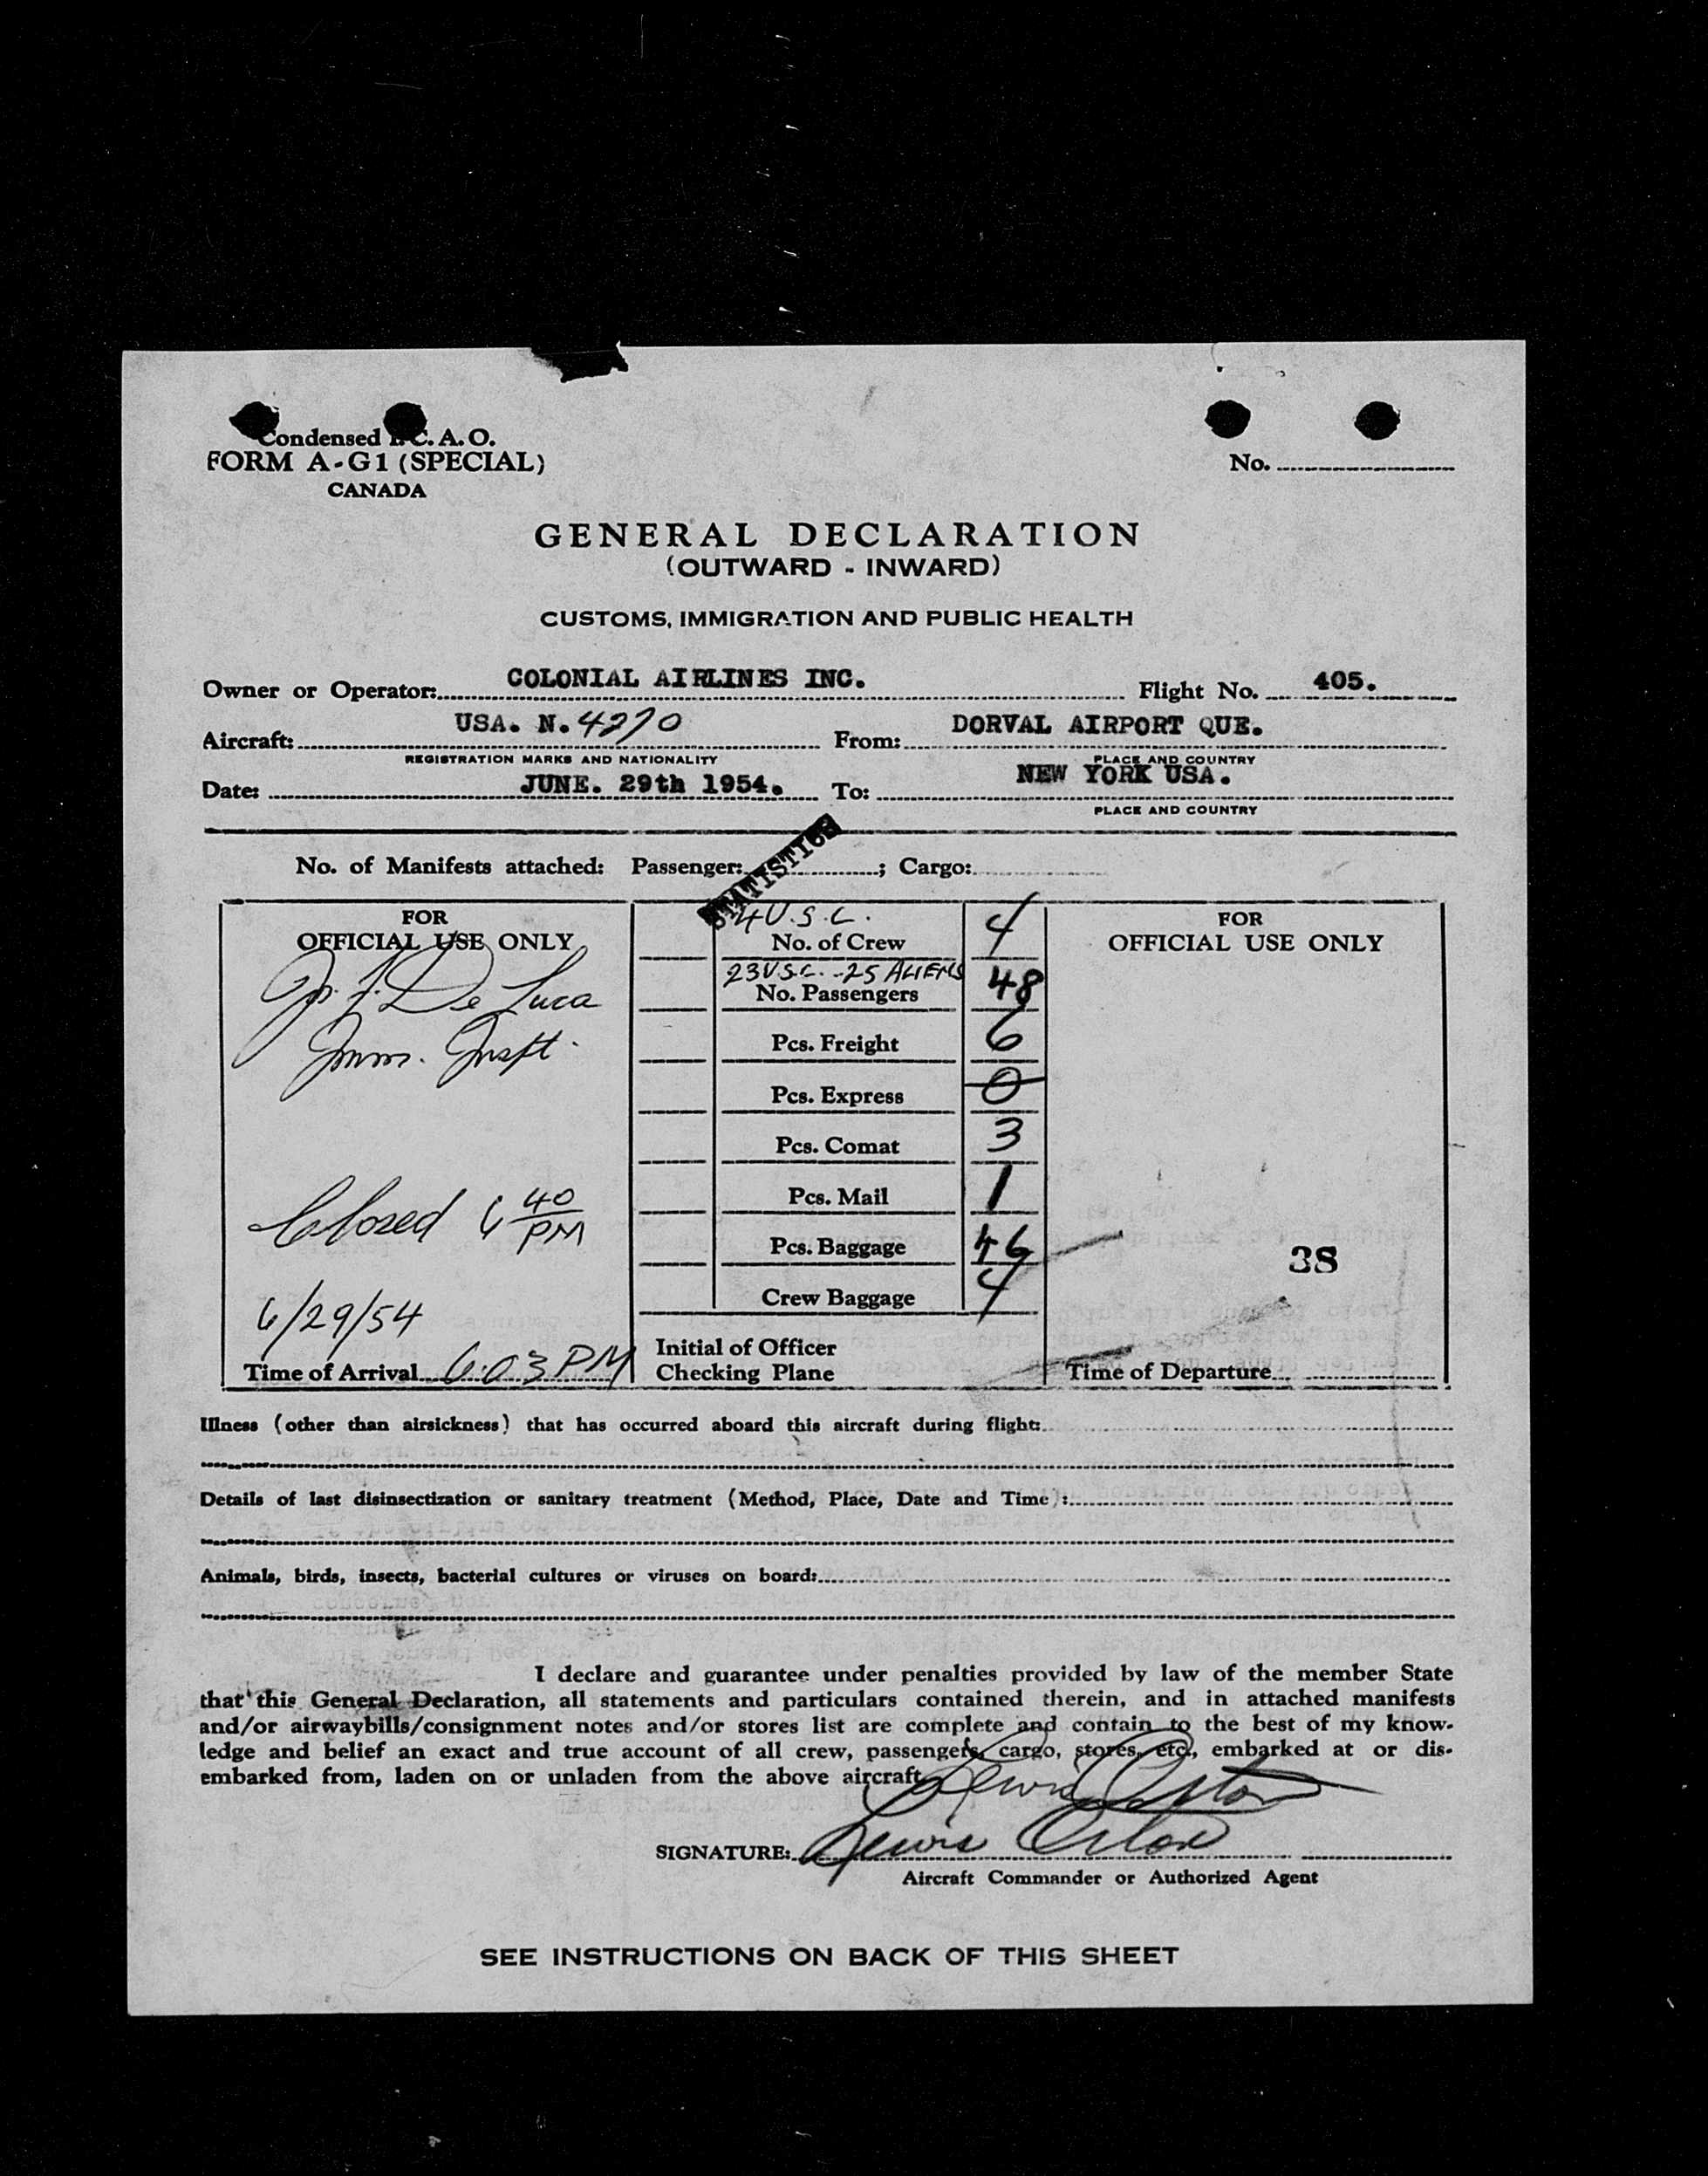 Condensed I.C.A.O.
FORM A-G1 (SPECIAL)
CANADA
No.
GENERAL DECLARATION
(OUTWARD - INWARD)
CUSTOMS, IMMIGRATION AND PUBLIC HEALTH
Owner or Operator: COLONIAL AIRLINES INC. Flight No. 405.
Aircraft: USA. N. 4270 From: DORVAL AIRPORT QUE.
REGISTRATION MARKS AND NATIONALITY PLACE AND COUNTRY
Date: JUNE. 29th 1954. To: NEW YORK USA.
PLACE AND COUNTRY
No. of Manifests attached: Passenger: ; Cargo:
STATISTICS
FOR
OFFICIAL USE ONLY
De Luca
Imm. Inspt.
Closed 6 40 PM
6/29/54
Time of Arrival 6:03 PM
4 U.S.C.
No. of Crew 4
23 U.S.C. - 25 ALIENS
No. Passengers 48
Pcs. Freight 6
Pcs. Express 0
Pcs. Comat 3
Pcs. Mail 1
Pcs. Baggage 46
Crew Baggage 4
Initial of Officer
Checking Plane
FOR
OFFICIAL USE ONLY
38
Time of Departure
Illness (other than airsickness) that has occurred aboard this aircraft during flight:
Details of last disinsectization or sanitary treatment (Method, Place, Date and Time):
Animals, birds, insects, bacterial cultures or viruses on board:
I declare and guarantee under penalties provided by law of the member State
that this General Declaration, all statements and particulars contained therein, and in attached manifests
and/or airwaybills/consignment notes and/or stores list are complete and contain to the best of my know-
ledge and belief an exact and true account of all crew, passengers, cargo, stores, etc., embarked at or dis-
embarked from, laden on or unladen from the above aircraft.
SIGNATURE: Lewis
Aircraft Commander or Authorized Agent
SEE INSTRUCTIONS ON BACK OF THIS SHEET